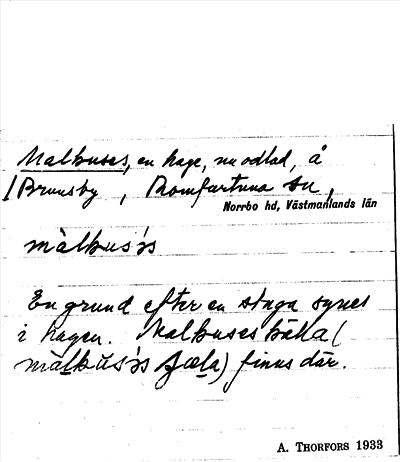 Malbuses, en hage, nu odlad, å
Brunsby, Romfartuna sn,
Norrbo hd, Västmanlands län
màlbus's
En grund efter en stuga synes
i hagen. Malbuses källa (
finns där.
A. Thorfors 1933